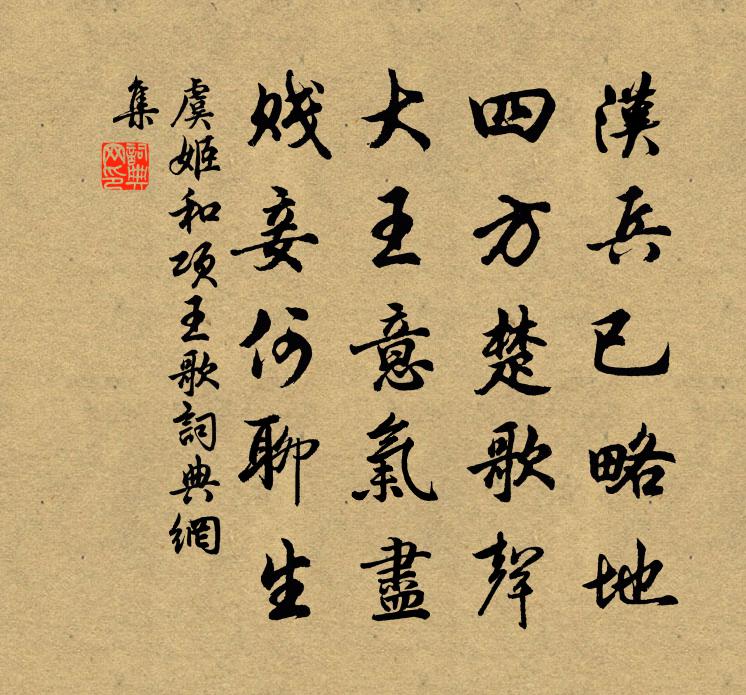 漢兵已略地
四方楚歌聲
大王意氣盡
賤妾何聊生
虞姬和項王歌詞典網
集
詞典
网印